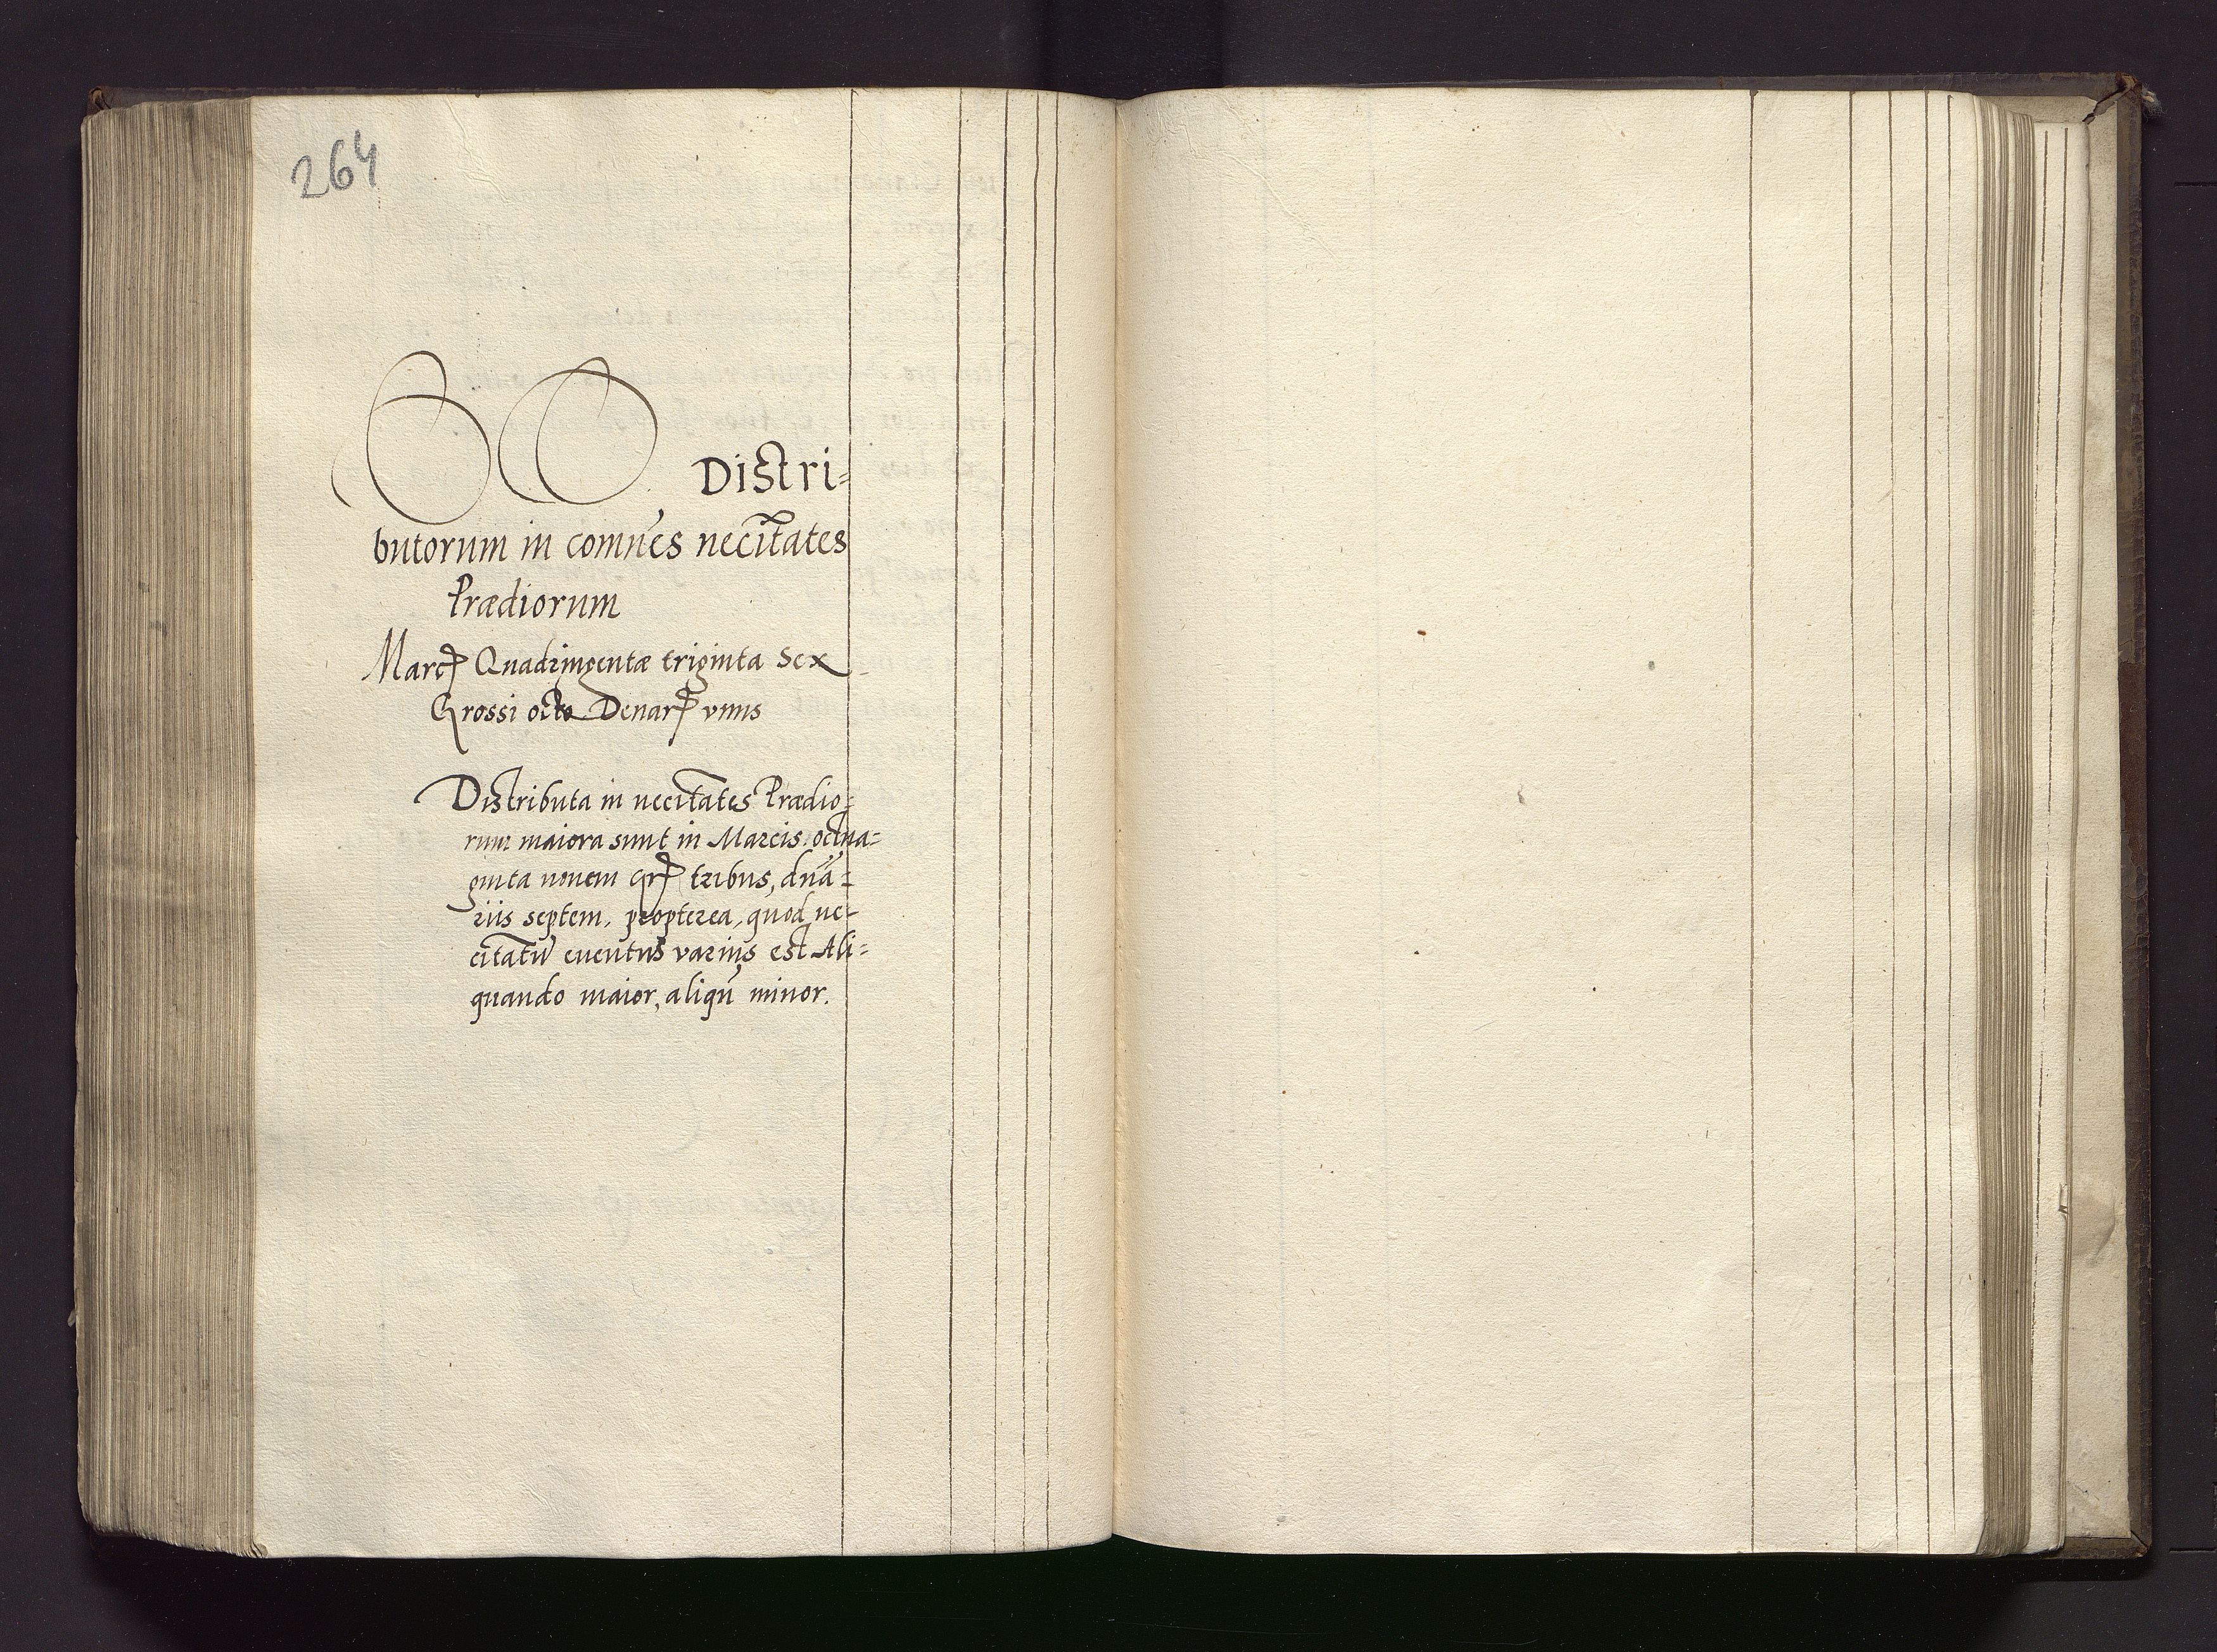 264
Distri=
butorum in comnẽs necĩtates
Prædiorum
Marcꝭ Quadringentæ triginta Sex
Grossi octo Denarꝭ vnus
Distributa in necĩtates Prædio=
rum maiora sunt in Marcis octua=
ginta nouem Grꝭ tribus, dnã=
riis septem, propterea, quod ne=
citatũ euentus varius est Ali=
quando maior, aliqñ minor.